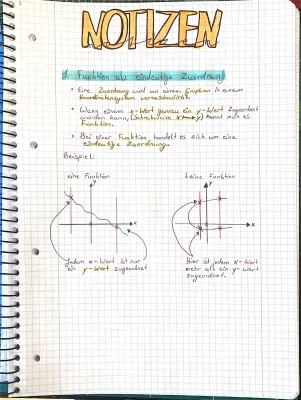 NOTIZEN
1. Funktion als eindeutige Zuordnung
• Eine Zuordnung wird von einem Graphen in einem
Koordinatensystem veranschaulicht.
• Wenn einem x-Wert genau ein y-Wert zugeordnet
werden kann, (Schreibweise x⟼y) nennt man es
Funktion.
• Bei einer Funktion handelt es sich um eine
eindeutige Zuordnung.
Beispiel:
eine Funktion
keine Funktion
y
y
x
x
Jedem x-Wert ist nur
ein y-Wert zugeordnet
Hier ist jedem x-Wert
mehr als ein y-Wert
zugeordnet.